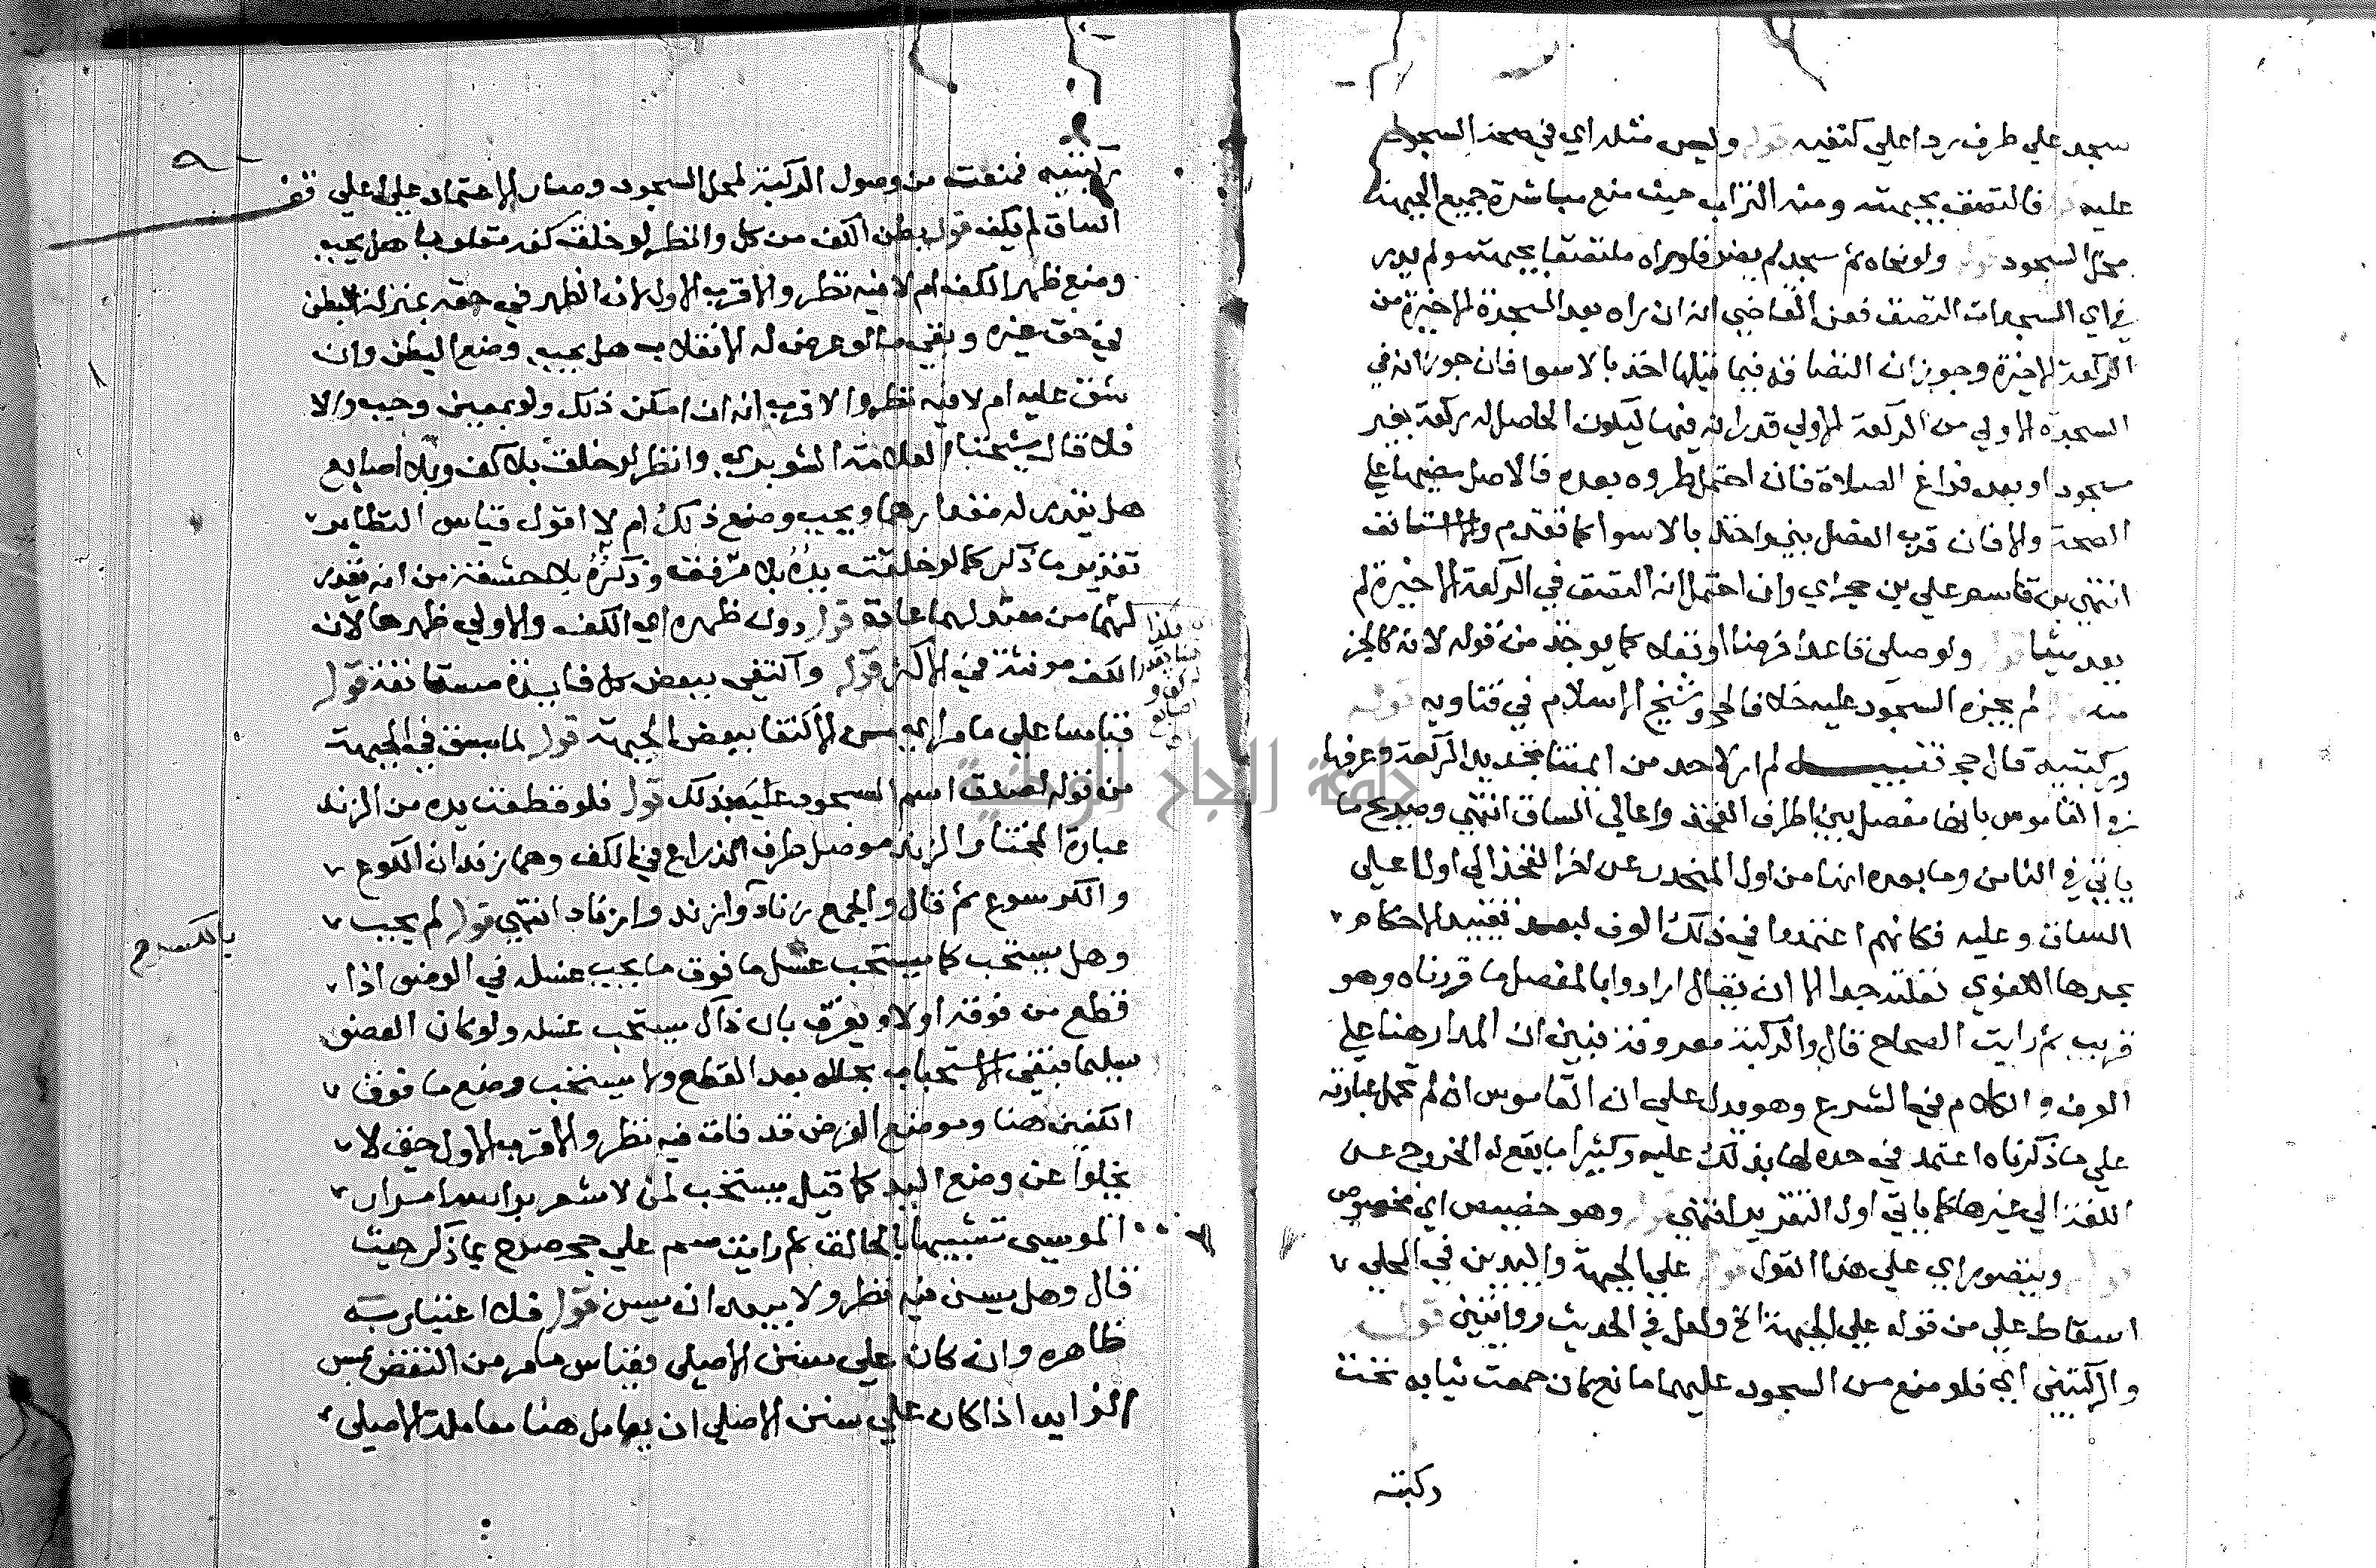 سجد علي طرف ردا علي كتفيه قوله وليس مثله اي في صحة السجود
عليه قوله فالتصق بجبهته ومنه التراب حيث منع مباشرة جميع الجبهة
محل السجود قوله ولو نحاه ثم سجد لم يضر فلو راه ملتصقا بجبهته ولم يدر
في اي السجدات التصق فعن القاضي انه ان راه بعد السجدة الاخيرة من
الركعة الاخيرة وجوز ان التصاقه فيما قبلها اخذ بالاسوا فان جوز انه في
السجدة الاولي من الركعة الاولي قدر انه فيها ليكون الحاصل له ركعة بغير
سجود او بعد فراغ الصلاة فان احتمل طروه بعده فالاصل مضيها علي
الصحة والا فان قرب الفصل بني واخذ بالاسوا كما تقدم والا استانف
انتهي بن قاسم علي بن حجر اي وان احتمل انه التصق في الركعة الاخيرة لم
يعد شيئا قوله ولو صلي قاعدا فرضا او نفلا كما يوخذ من قوله لانه كالجز
منه لم يجزه السجود عليه خلافا لحج وشيخ الاسلام في فتاويه قوله
وركبتيه قال حج تنبيه لم ار لاحد من ايمتنا تحديد الركعة وعرفها
في القاموس بانها مفصل بين اطراف الفخذ واعالي الساق انتهي وصريح ما
ياتي في الثامن وما بعده انها من اول المنحدر عن اخر الفخذ الي اول اعلي
الساق وعليه فكانهم اعتمدوا في ذلك العرف لبعد تقييد الاحكام
بحدها اللغوي لقلته جدا الا ان يقال ارادوا بالمفصل ما قررناه وهو
قريب ثم رايت الصحاح قال والركبة معروفة فبين ان المدار هنا علي
العرف و الكلام في الشرع وهو يدل علي ان القاموس ان لم تحمل عبارته
علي ما ذكرناه اعتمد في حده لها بذلك عليه وكثيرا ما يقع له الخروج عن
اللغة الي غيرها كما ياتي اول التعزير انتهي قوله وهو خصيص اي مخصوص
قوله ويتصور اي علي هذا القول قوله علي الجبهة واليدين في المحلي
اسقاط علي من قوله علي الجبهة الخ ولعل في الحديث روايتين قوله
والركبتين اي فلو منع من السجود عليهما مانع كان جمعت ثيابه تحت
ركبته
ركبتيه فمنعت من وصول الركبة لمحل السجود وصار الاعتماد علي اعلي قف
الساق لم يكف قوله بطن الكف من كل وانظر لو خلق كفه مقلوبا هل يجب
وضع ظهر الكف ام لا فيه نظر والاقرب الاول لان الظهر في حقه بمنزلة البطن
في حق غيره وبقي ما لو عرض له الانقلاب هل يجب وضع البطن وان
شق عليه ام لا فيه نظر والاقرب انه ان امكن ذلك ولو بمعين وجب والا
فلا قال شيخنا العلامة الشوبري وانظر لو خلق بلا كف وبلا اصابع
هل يقدر له مقدارهما ويجب وضع ذلك ام لا اقول قياس النظاير
تقدير ما ذكر كما لو خلقت يده بلا مرفق وذكره بلا حشفة من انه يقدر
لهما من معتدلهما عادة قوله دون ظهره اي الكف والاولي ظهرها لان
الكف مونثة في الاكثر قوله واكتفي ببعض كل فايدة مستانفة قوله
قياسا علي ما مر اي من الاكتفا ببعض الجبهة قوله لما سبق في الجبهة
من قوله لصدق اسم السجود عليه بذلك قوله فلو قطعت يده من الزند
عبارة المختار الزند موصل طرف الذراع في الكف وهما زندان الكوع
والكرسوع ثم قال والجمع زناد وازند وازناد انتهي قوله لم يجب
وهل يستحب كما يستحب غسل ما فوق ما يجب غسله في الوضو اذا
قطع من فوقه اولا ويفرق بان ذاك يستحب غسله ولو كان العضو
سليما فبقي الاستحباب بحاله بعد القطع ولا يستحب وضع ما فوق
الكفين هنا وموضع الفرض قد فات فيه نظر والاقرب الاول حتي لا
يخلوا عن وضع اليد كما قيل يستحب لمن لا شعر براسه امرار
الموسي تشبيها بالحالق ثم رايت سم علي حج صرح بما ذكر حيث
قال وهل يسن فيه نظر ولا يبعد ان يسن قوله فلا اعتبار به
ظاهره وان كان علي سنن الاصلي وقياس ما مر من النقض بمس
الزايد اذا كان علي سنن الاصلي ان يعامل هنا معاملة الاصلي
هكذا
جامعة النجاح الوطنية